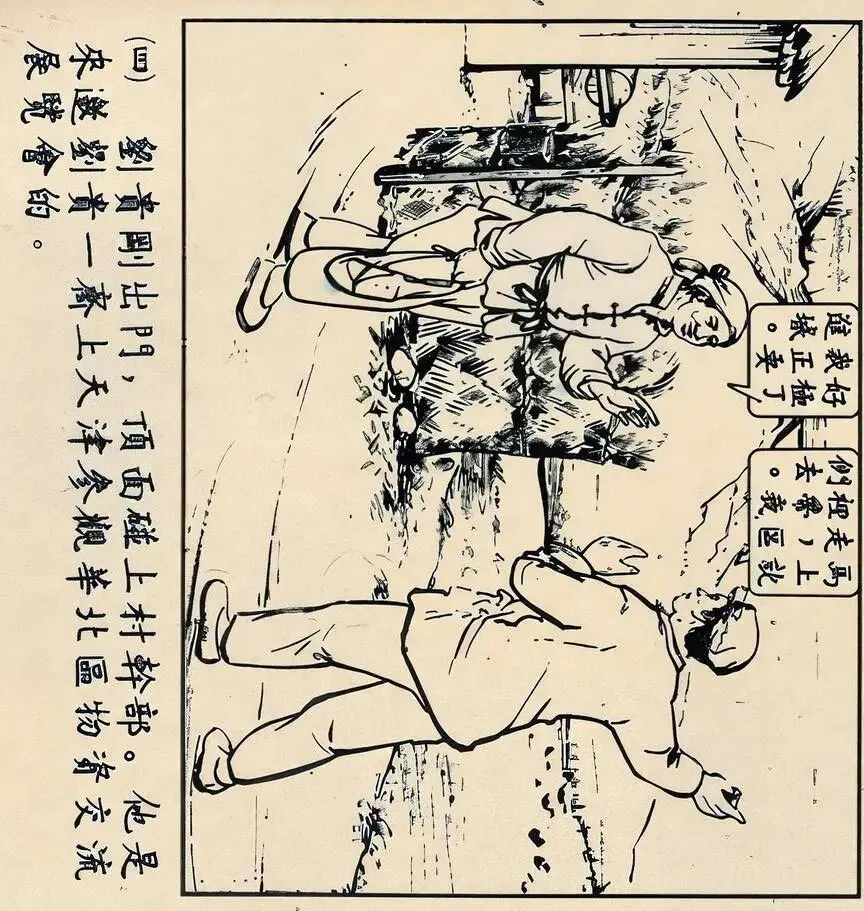 馬上就
走，區
裡我
們去。
好極了
我正要
進城。
(四) 劉貴剛出門，頂面碰上村幹部。他是
來邀劉貴一齊上天津參觀華北區物資交流
展覽會的。